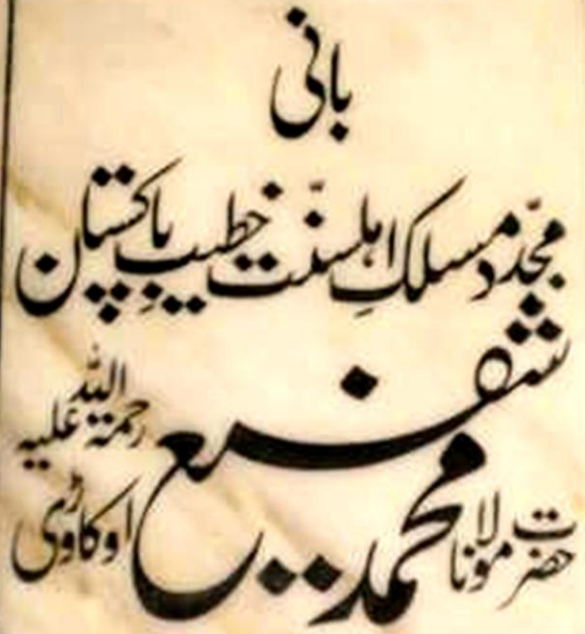 بانی
مجدّد مسلکِ اہلسنّت خطیبِ پاکستان
حضرت مولانا محمد شفیع اوکاڑوی رحمۃ اللہ علیہ